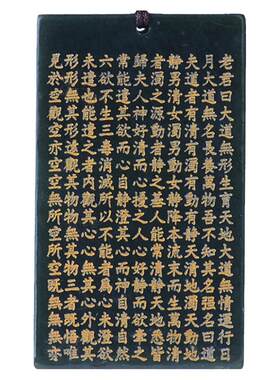 老君曰大道無形生育天地大道無情運行日
月大道無名長養萬物吾不知其名强名曰道
夫道者有清有濁有動有静天清地濁天動地
静男清女濁男動女静降本流末而生萬物清
者濁之源動者静之基人能常清静天地悉皆
歸夫人神好清而心擾之人心好静而慾牽之
常能遣其欲而心自静澄其心而神自清自然
六欲不生三毒消滅所以不能者為心未澄欲
未遣也能遣之者内觀其心心無其心外觀其
形形無其形遠觀其物物無其物三者既悟唯
見於空觀空亦空空無所空所空既無無無亦